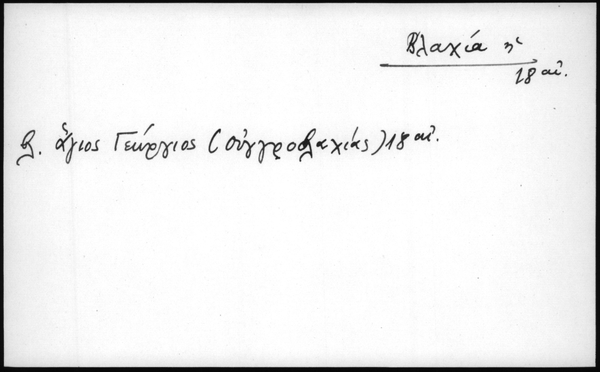 Βλαχία ἡ
18 αἰ.
βλ. ἅγιος Γεώργιος (Οὑγγροβλαχίας) 18 αἰ.